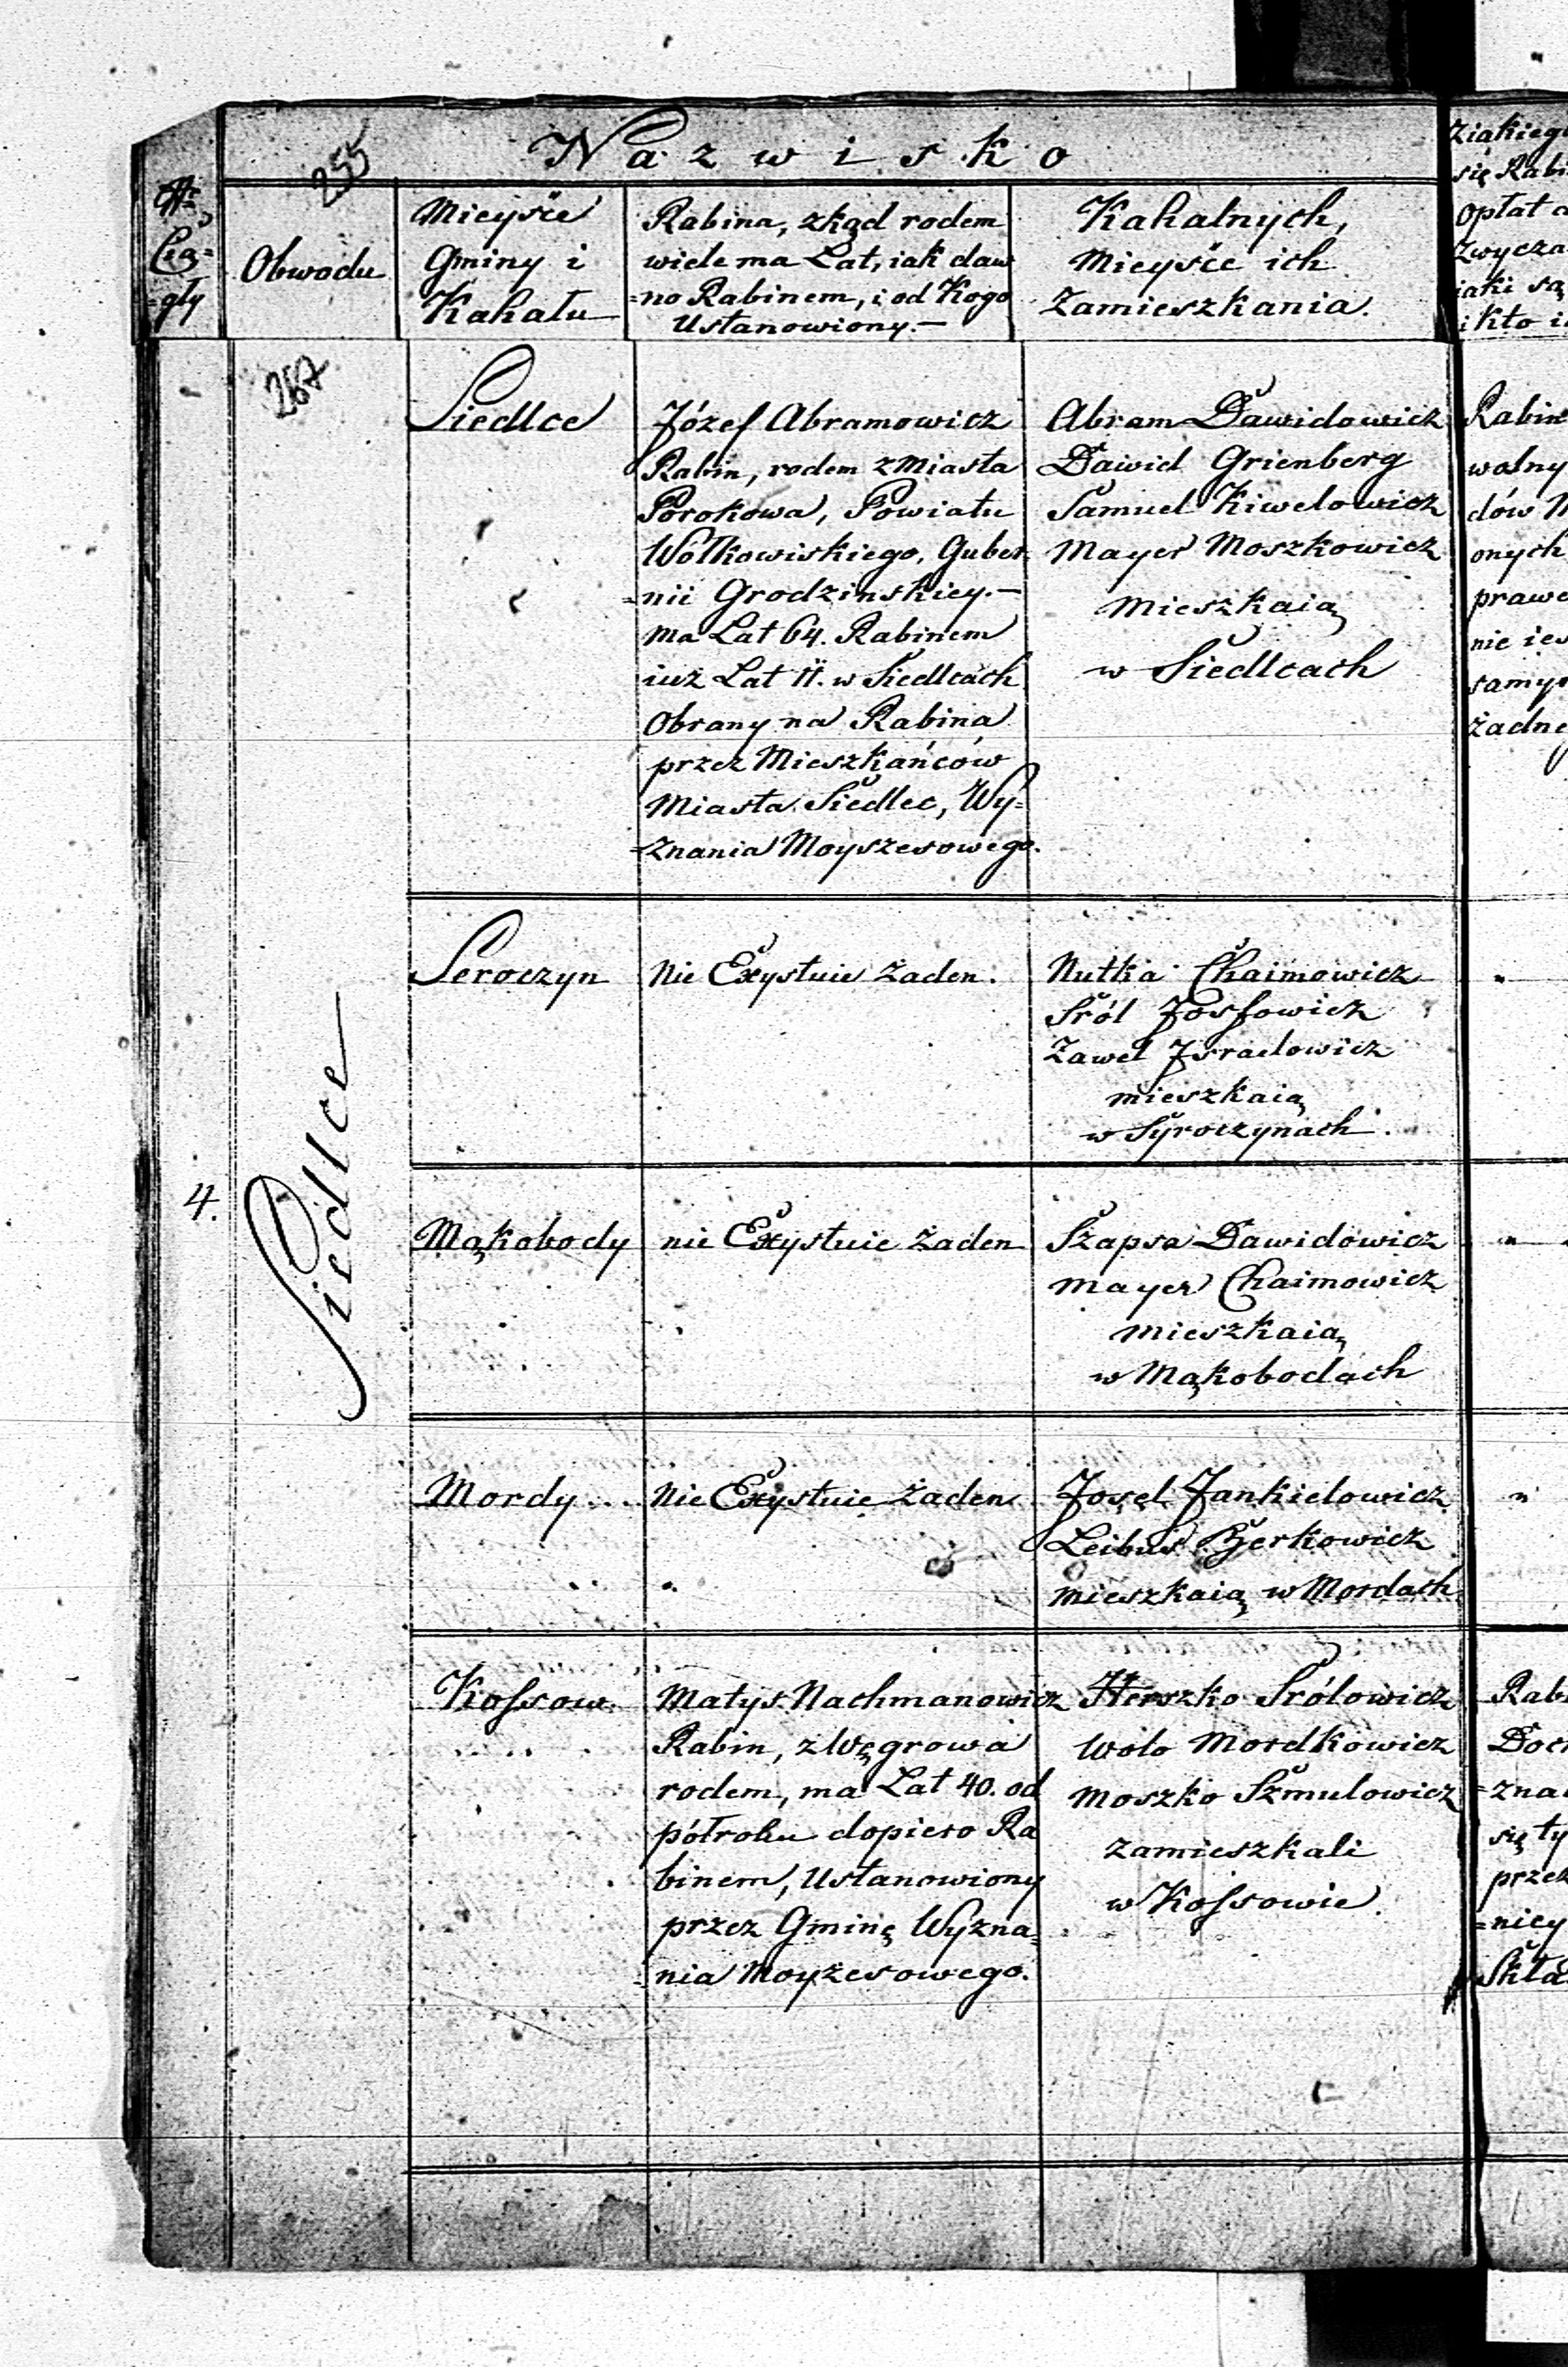 Nazwisko
255
Nr
Cią=
=gły
Obwodu
Mieysce
Gminy i
Kahału
Rabina, zkąd rodem
wiele ma Lat, iak daw
=no Rabinem, i od Kogo
Ustanowiony.—
Kahalnych,
Mieysce ich
Zamieszkania.
Ziakieg
się Rabi
Opłat
Zwycza
iaki są
i kto i
267
4.
Siedlce
Siedlce
Józef Abramowicz
Rabin, rodem z Miasta
Porokowa, Powiatu
Wołkowiskiego, Guber
=nii Grodzinskiey.—
ma Lat 64. Rabinem
iuż Lat 11. w Siedlcach
Obrany na Rabina
przez Mieszkańców
Miasta Siedlec, Wy=
=znania Moyszesowego.
Abram Dawidowicz
Dawid Grienberg
Samuel Kiwelowicz
Mayer Moszkowicz
Mieszkaią
w Siedlcach
Rabin
wolny
dów
onych
prawe
nie ies
samy
żadne
Seroczyn
Nie Exystuie Żaden.
Nutka Chaimowicz
Śról Josfowicz
Zawel Israelowicz
mieszkaią
w Syroczynach.
"
Mąkobody
nie Exystuie Żaden
Szapsa Dawidowicz
Mayer Chaimowicz
Mieszkaią
w Mąkobodach
"
Mordy...
Nie Exystuie Żaden
Josel Jankielowicz
Leibus Berkowicz
mieszkaią w Mordach
"
Kossow.
Matys Nachmanowicz
Rabin, z Węgrowa
rodem, ma Lat 40. od
półroku dopiero Ra
binem, Ustanowiony
przez Gminę Wyzna=
nia Moyżesowego.
Herszko Srólowicz
Wolo Mordkowicz
Moszko Szmulowicz
zamieszkali
w Kossowie.
Rabi
Doc
=zna
się ty
przez
=nicy
Skła